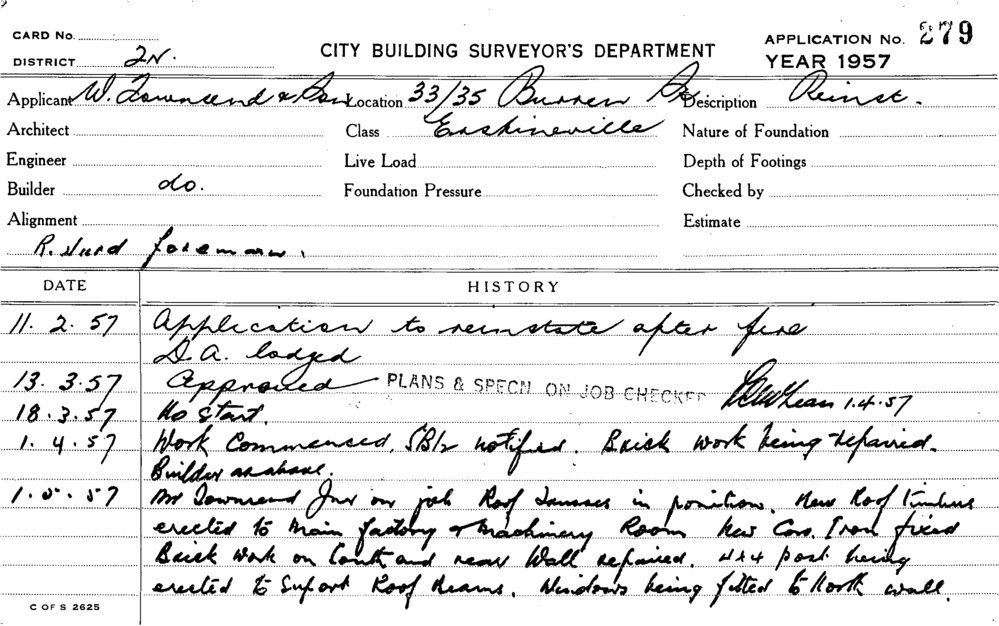 CARD No.
DISTRICT 2N.
CITY BUILDING SURVEYOR'S DEPARTMENT
APPLICATION No. 279
YEAR 1957
Applicant W. Townsend & Son Location 33/35 Burren St Description Reinst.
Architect Class Erskineville Nature of Foundation
Engineer Live Load Depth of Footings
Builder do. Foundation Pressure Checked by
Alignment Estimate
R. Hurd foreman.
DATE HISTORY
11. 2. 57 Application to reinstate after fire
D.A. lodged
13. 3. 57 Approved PLANS & SPECN ON JOB CHECKED 1.4.57
18. 3. 57 No Start.
1. 4. 57 Work Commenced, notified. Brick work being repaired.
Builder as above.
1. 5. 57 Mr Townsend Jnr on job Roof Trusses in position. New Roof timbers
erected to Main factory & Machinery Room New Corr. Iron fixed
Brick Work on South and rear Wall repaired. 4x4 post being
erected to Suport Roof Beams. Windows being fitted to North wall.
C OF S 2625